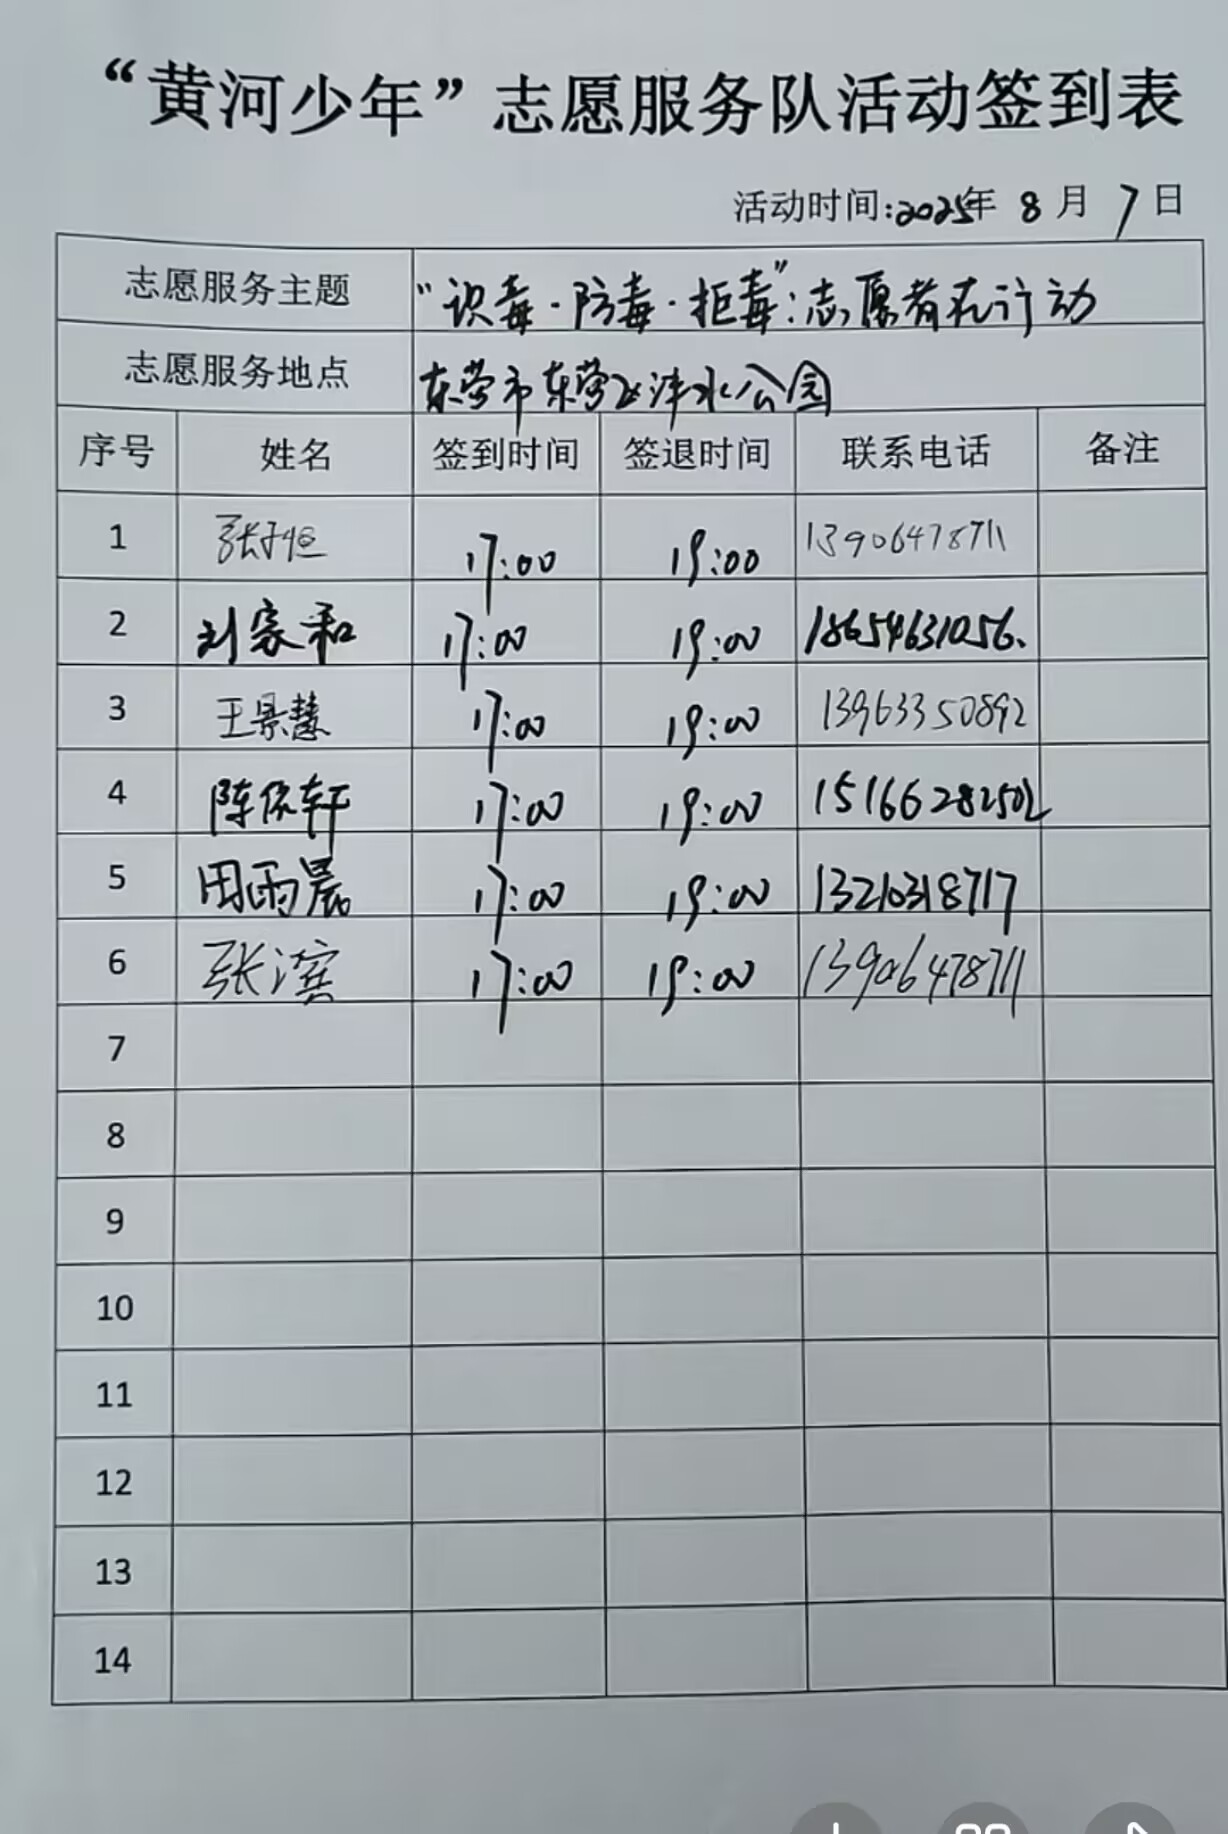 “黄河少年”志愿服务队活动签到表
活动时间:2025年 8 月 7 日
志愿服务主题 “识毒·防毒·拒毒”:志愿者在行动
志愿服务地点 东营市东营区沣水公园
序号 姓名 签到时间 签退时间 联系电话 备注
1 张子恒 17:00 19:00 13906478711
2 刘家和 17:00 19:00 18654631056.
3 王景慧 17:00 19:00 13963350892
4 陈依轩 17:00 19:00 15166282502
5 田雨晨 17:00 19:00 13210318717
6 张滨 17:00 19:00 13906478711
7
8
9
10
11
12
13
14